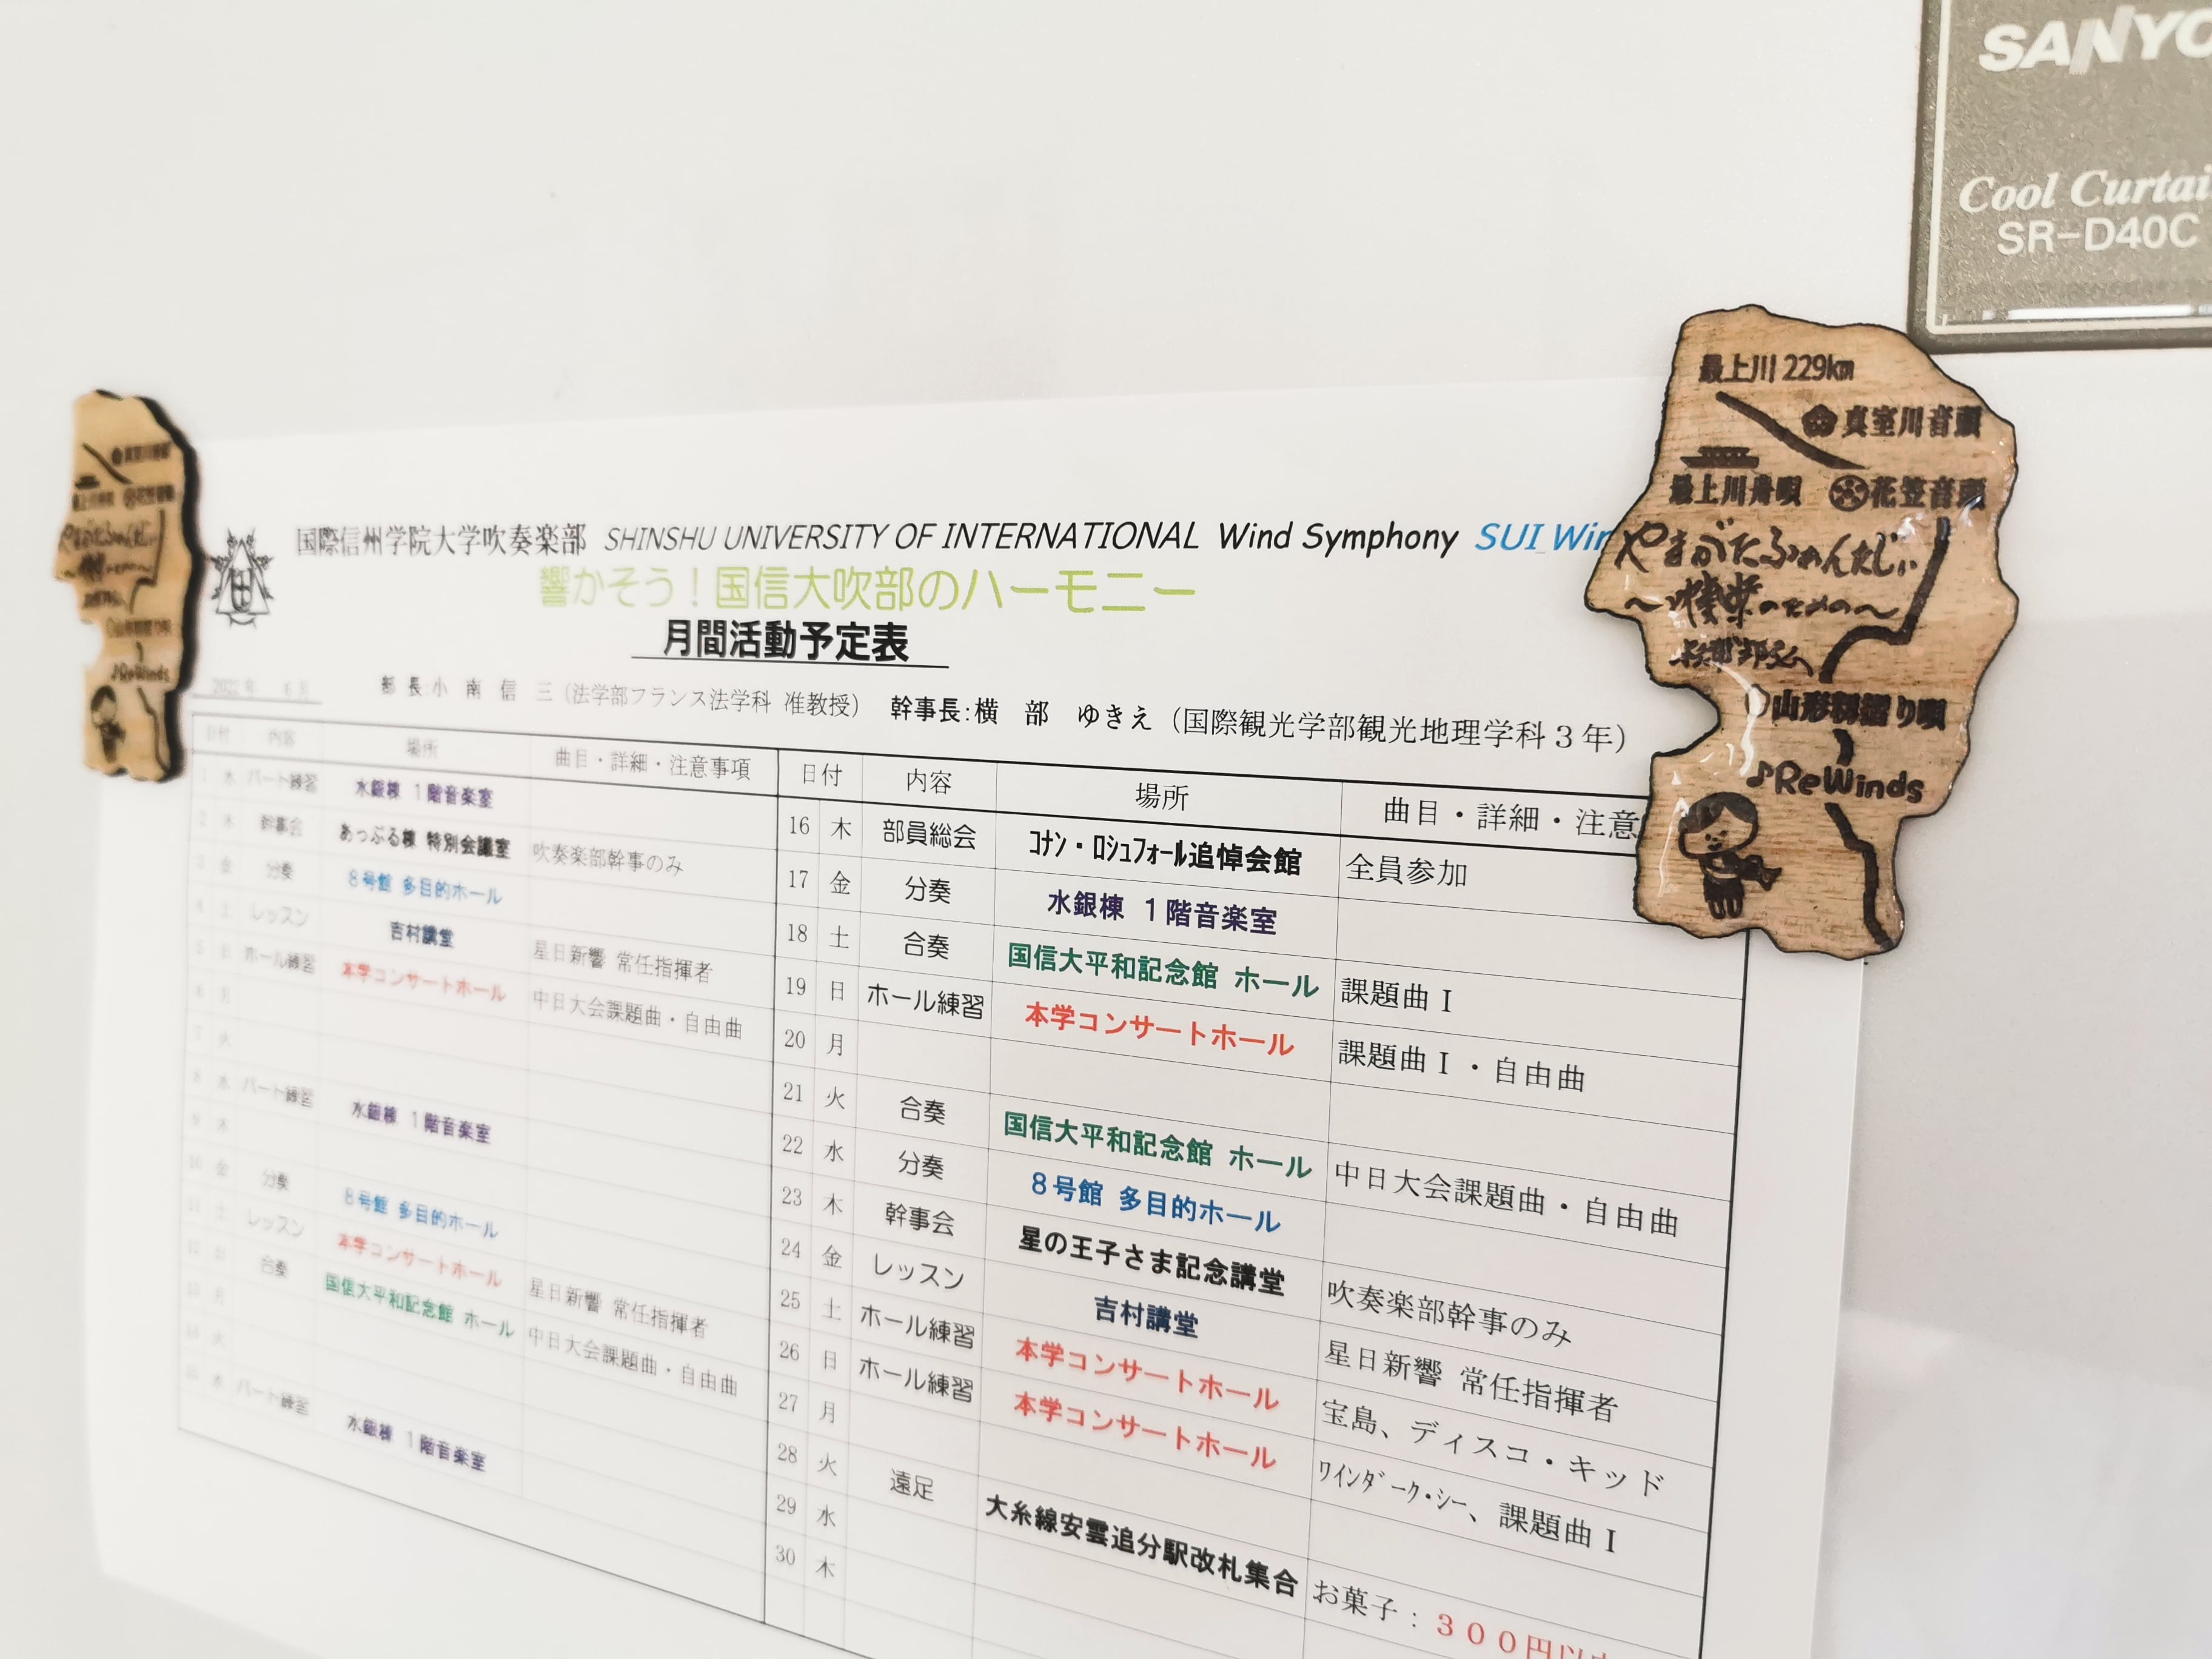 SANYO
Cool Curtai
SR-D40C
最上川 229km
真室川音頭
最上川舟唄 花笠音頭
やまがたふぁんたじぃ
~吹奏楽のための~
山形籾摺り唄
♪ReWinds
国際信州学院大学吹奏楽部 SHINSHU UNIVERSITY OF INTERNATIONAL Wind Symphony SUI Win
響かそう！国信大吹部のハーモニー
月間活動予定表
2022年 6月 部 長:小 南 信 三（法学部フランス法学科 准教授） 幹事長:横 部 ゆきえ（国際観光学部観光地理学科３年）
日付 内容 場所 曲目・詳細・注意事項
1 水 パート練習 水銀棟 １階音楽室
2 木 幹事会 あっぷる棟 特別会議室 吹奏楽部幹事のみ
3 金 分奏 ８号館 多目的ホール
4 土 レッスン 吉村講堂 星日新響 常任指揮者
5 日 ホール練習 本学コンサートホール 中日大会課題曲・自由曲
6 月
7 火
8 水 パート練習 水銀棟 １階音楽室
9 木
10 金 分奏 ８号館 多目的ホール
11 土 レッスン 本学コンサートホール 星日新響 常任指揮者
12 日 合奏 国信大平和記念館 ホール 中日大会課題曲・自由曲
13 月
14 火
15 水 パート練習 水銀棟 １階音楽室
日付 内容 場所 曲目・詳細・注意
16 木 部員総会 ｺﾅﾝ・ﾛｼｭﾌｫｰﾙ追悼会館 全員参加
17 金 分奏 水銀棟 １階音楽室
18 土 合奏 国信大平和記念館 ホール 課題曲Ⅰ
19 日 ホール練習 本学コンサートホール 課題曲Ⅰ・自由曲
20 月
21 火 合奏 国信大平和記念館 ホール 中日大会課題曲・自由曲
22 水 分奏 ８号館 多目的ホール
23 木 幹事会 星の王子さま記念講堂 吹奏楽部幹事のみ
24 金 レッスン 吉村講堂 星日新響 常任指揮者
25 土 ホール練習 本学コンサートホール 宝島、ディスコ・キッド
26 日 ホール練習 本学コンサートホール ﾜｲﾝﾀﾞｰｸ・ｼｰ、課題曲Ⅰ
27 月
28 火 遠足 大糸線安雲追分駅改札集合 お菓子：３００円以
29 水
30 木